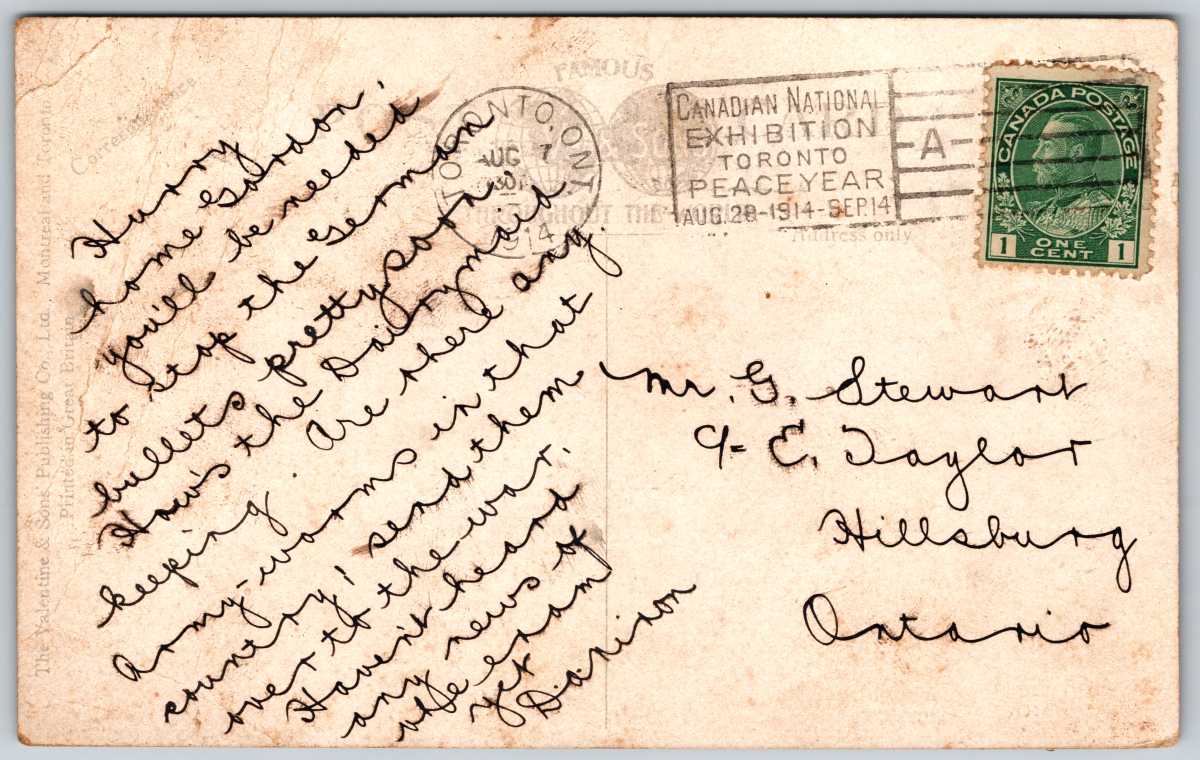 Correspondence
The Valentine & Sons Publishing Co., Ltd., Montreal and Toronto
Printed in Great Britain
FAMOUS
THROUGHOUT THE
Address only
TORONTO, ONT
AUG 7
30
914
CANADIAN NATIONAL
EXHIBITION
TORONTO
PEACE YEAR
AUG. 29-1914-SEP. 14
A
CANADA POSTAGE
1 ONE CENT 1
Hurry
home Gordon!
you'll be needed
to stop the German
bullets pretty soon.
How's the Dairymaid
keeping. Are there any
Army-worms in that
country; send them
over to the war.
Haven't heard
any news of
the exam
yet
Mr. G. Stewart
c/- E. Taylor
Hillsburg
Ontario